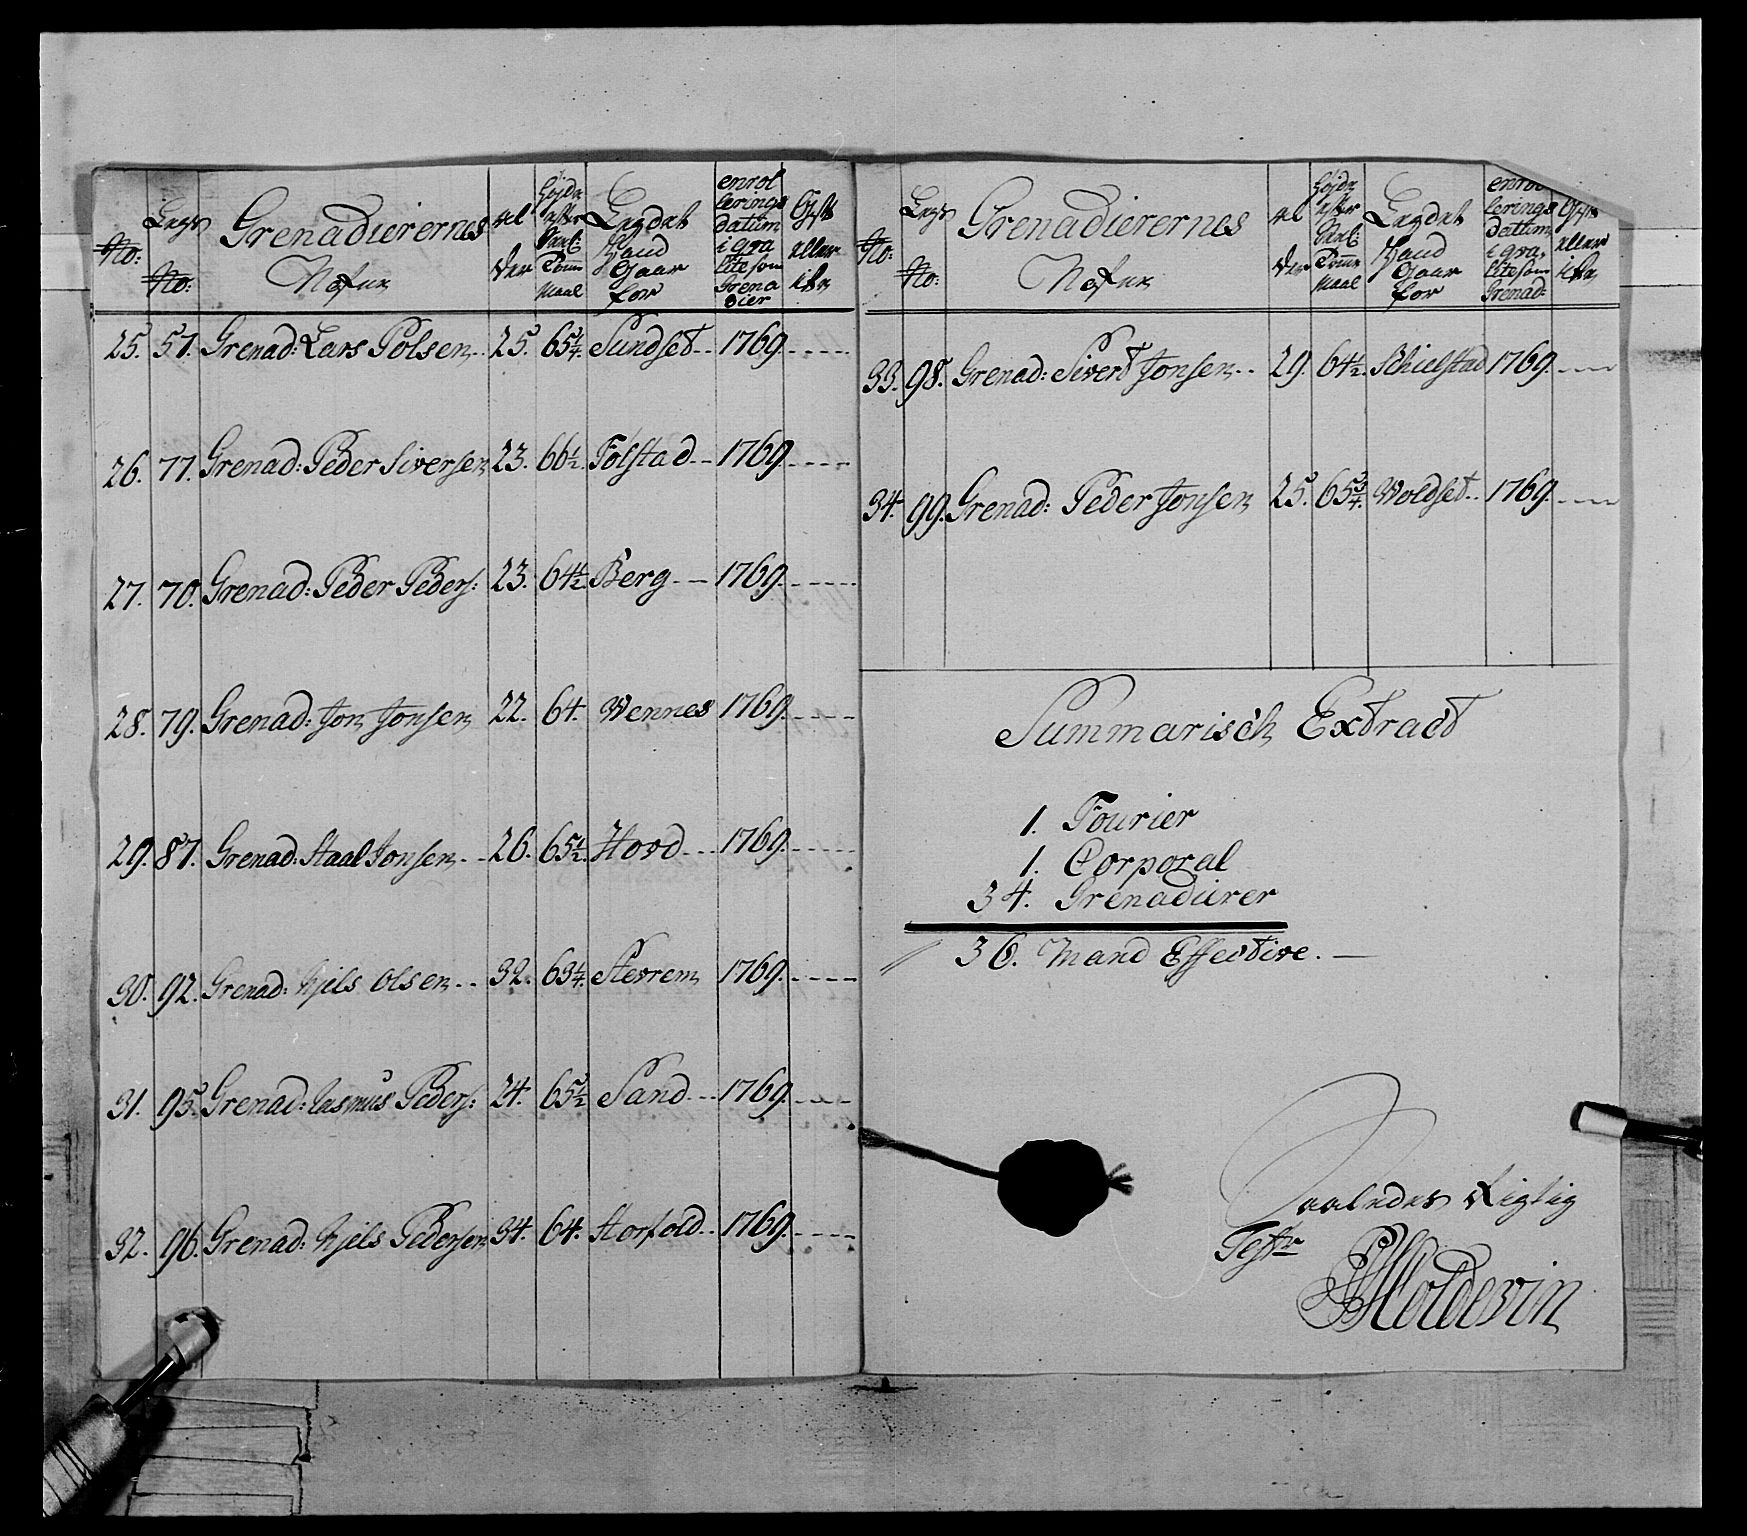 No: Legs No: Grenadierernes Nafne
Legdet Hand Gaar for
enrollerings datum i qvalite som Grenadier
Gift eller ikke
25. 57. Grenad: Lars Polsen 25. 65 1/4. Sundset 1769.
26. 77. Grenad: Peder Siversen 23. 66 1/2. Folstad 1769.
27. 70. Grenad: Peder Peders: 23. 64 1/2 Berg 1769.
28. 79. Grenad: Jon Jonsen 22. 64. Wennes 1769.
29. 87. Grenad: Staal Jonsen 26. 65 1/2. Hovd 1769.
30. 92. Grenad: Njels Olsen 32. 63 1/4. 1769.
31. 95. Grenad: Rasmus Peders: 24. 65 1/2 Sand 1769.
32. 96. Grenad: Njels Pedersen 34. 64. Storfold 1769.
No: Legs No: Grenadierernes Nafne
Legdet Hand Gaar for
enrollerings dattum i qvalite som Grenad:
Gift eller ikke
33. 98. Grenad: Sivert Jonsen 29. 64 1/2. Schielstad 1769.
34. 99. Grenad: Peder Jonsen 25. 65 3/4. Woldset 1769.
Summarisch Extract
1. Fourier
1. Corporal
34. Grenadierer
36. Mand Effective.
Saaledes Rigtig
Holdevin